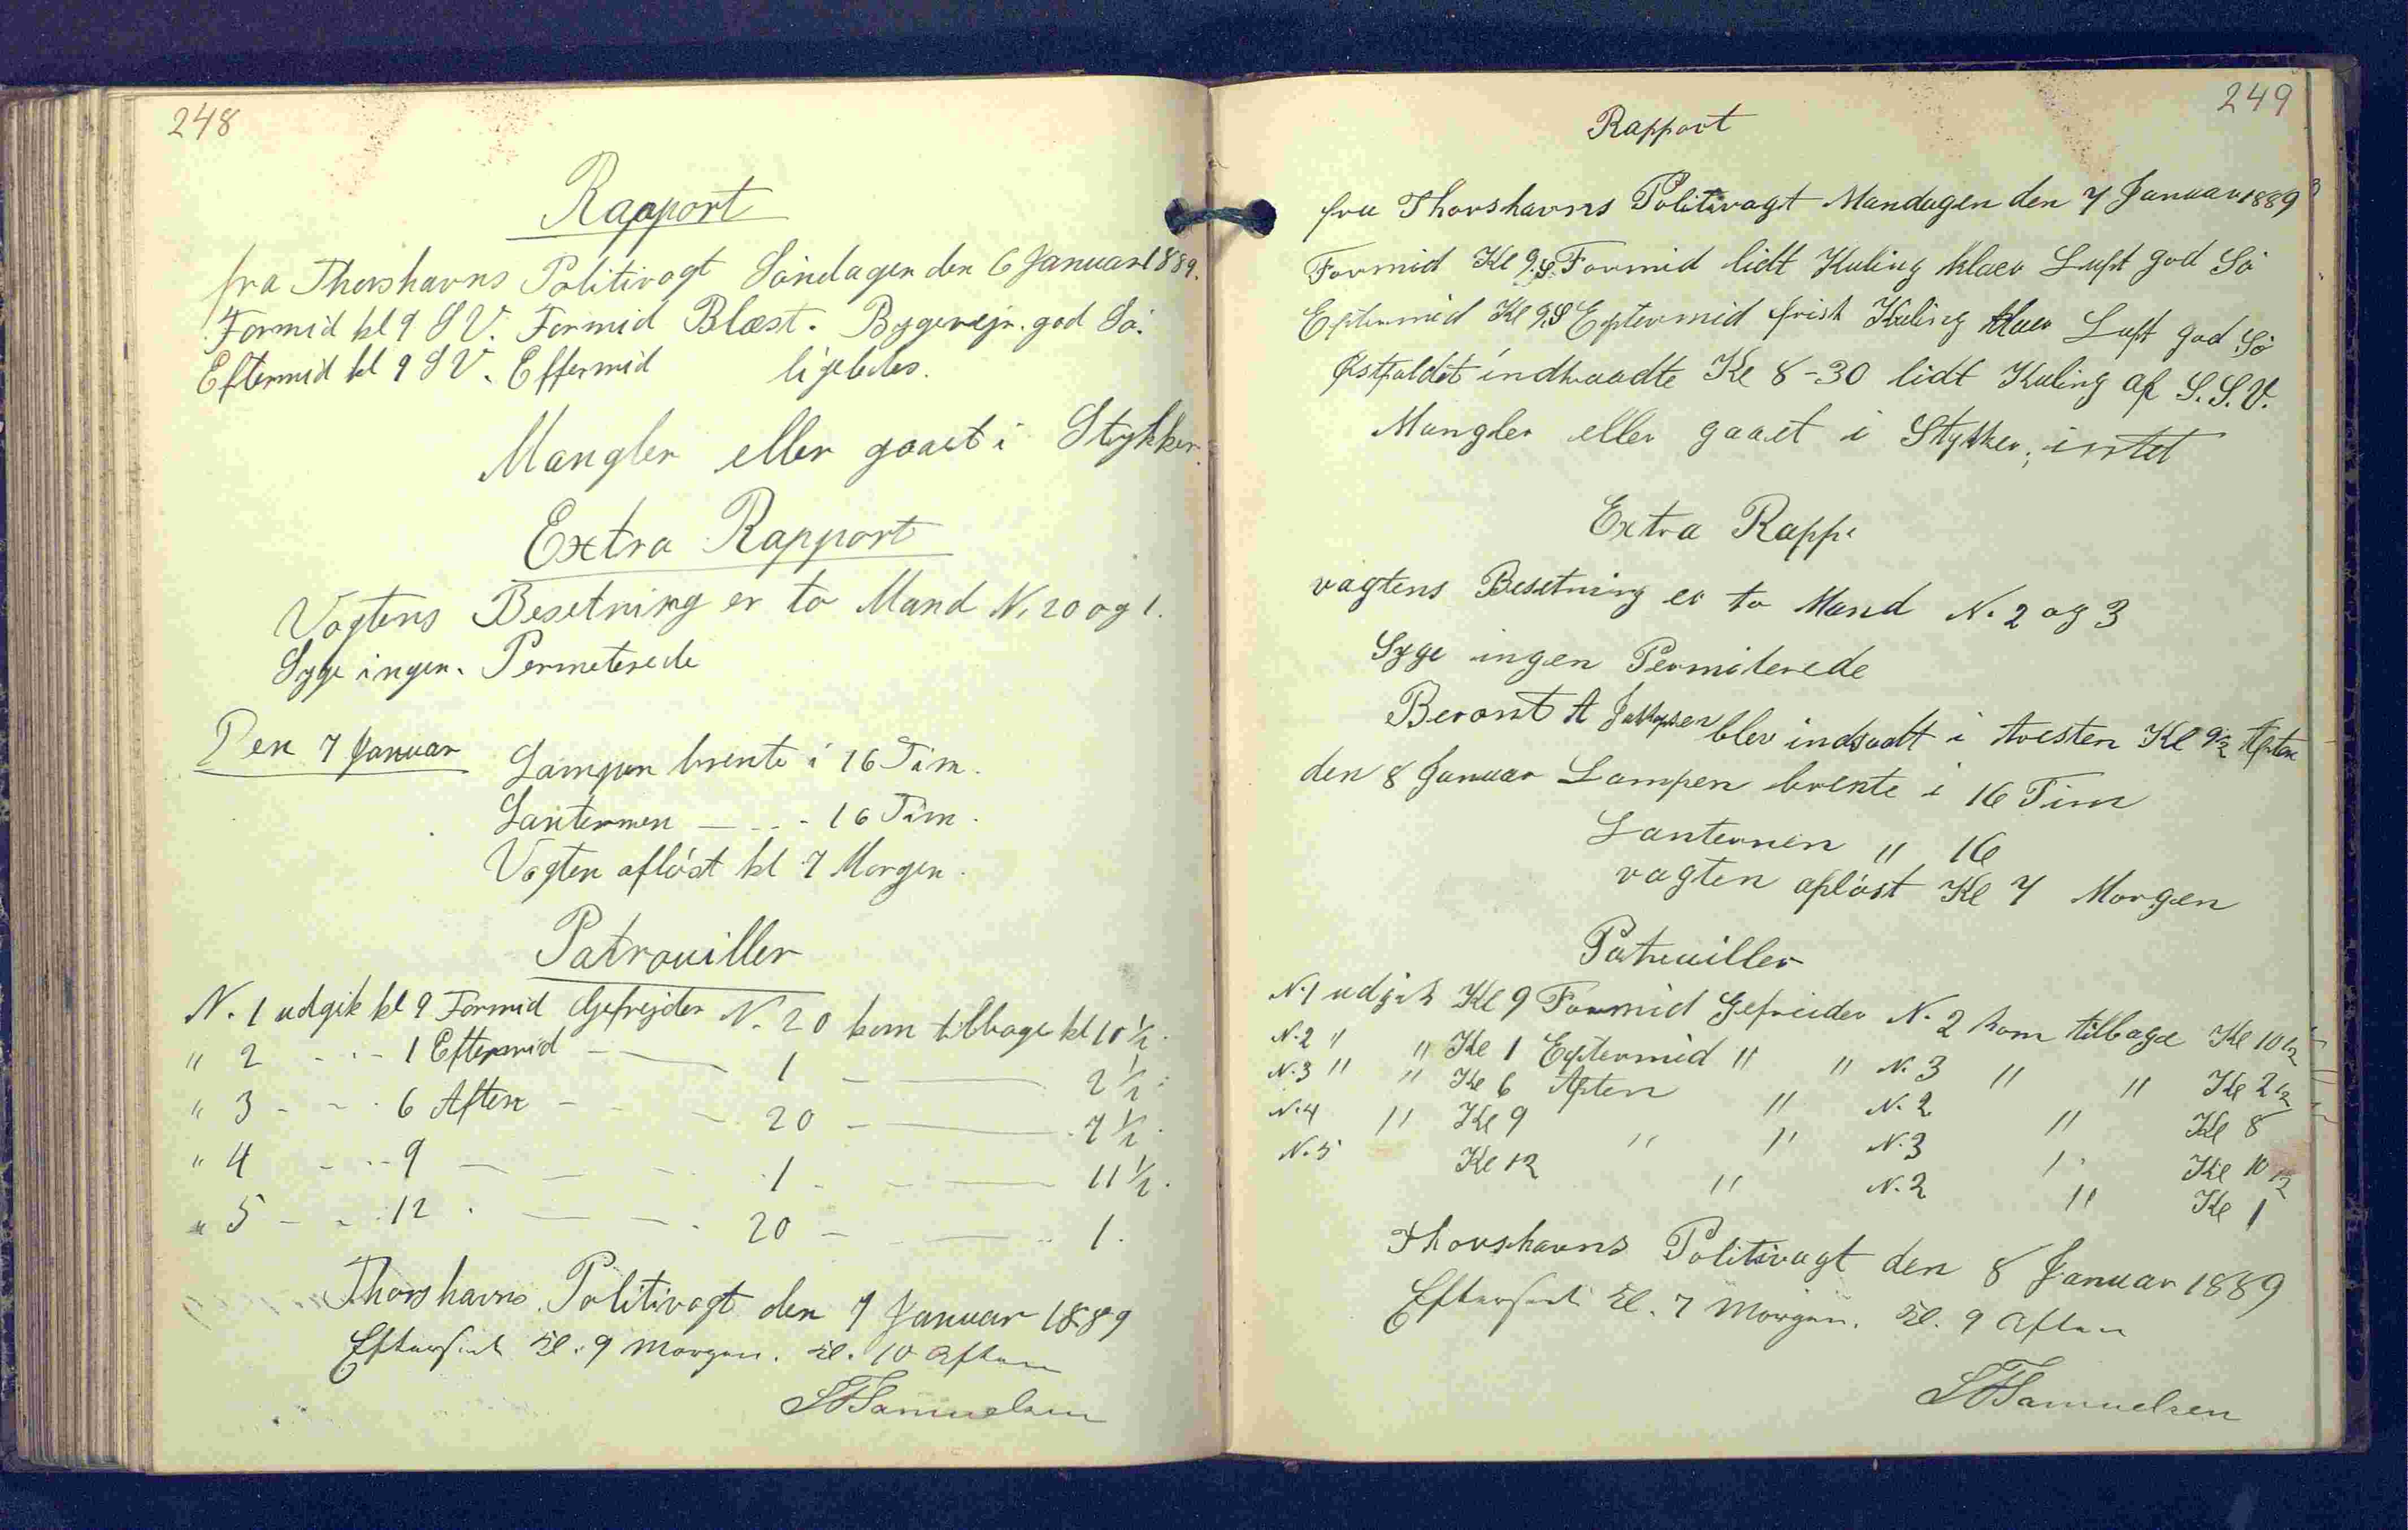 248
Rapport
fra Thorshavns Politivagt Söndagen den 6 Januar 1889.
Formid kl 9 SV. Formid Blæst. Bygevejr. god Sö.
Eftermid kl 9 SV. Effermid ligeledes.
Mangler eller gaaet i Stykker.
Extra Rapport
Vagtens Besetning er to Mand N. 20 og 1.
Syge ingen. Permeterede
Den 7 Januar Lampen brente i 16 Tim.
Lanternen — - - 16 Tim.
Vagten aflöst kl 7 Morgen.
Patrouiller
N. 1 udgik kl 9 Formid Gefrejder N. 20 kom tilbage kl 10 ½.
" 2 - - - 1 Eftermid — 1 — 2 ½.
" 3 - - - 6 Aften - - - 20 — 7 ½.
" 4 - - - 9 — - - 1 - — 11 ½.
" 5 - - - 12 . — - - 20 - — 1.
Thorshavns Politivagt den 7 Januar 1889
Efterseet Kl. 9 Morgen. Kl. 10 Aften
Samuelsen
249
Rapport
fra Thorshavns Politivagt Mandagen den 7 Januar 1889
Formid Kl 9 S. Formid lidt Kuling klaer Luft god Sö
Eftermid Kl 9 S Eftermid frisk Kuling klaer Luft god Sö
Østfaldet indtraadte Kl 8-30 lidt Kuling af S.S.V.
Mangler eller gaaet i Stykker; intet
Extra Rapp.
vagtens Besetning er to Mand N. 2 og 3
Syge ingen Permiterede
Berant A blev indsadt i Aresten Kl 9½ Aften
den 8 Januar Lampen brente i 16 Tim
Lanternen " 16
vagten aflöst Kl 7 Morgen
Patruiller
N.1 udgik Kl 9 Formid Gefreider N. 2 kom tilbage Kl 10½
N.2 " " Kl 1 Eftermid " " N. 3 " " Kl 2½
N.3 " " Kl 6 Aften " N. 2 " Kl 8
N.4 " Kl 9 " " N. 3 " Kl 10½
N.5 Kl 12 " N. 2 " Kl 1
Thorshavns Politivagt den 8 Januar 1889
Efterseet Kl. 7 Morgen. Kl. 9 Aften
Samuelsen